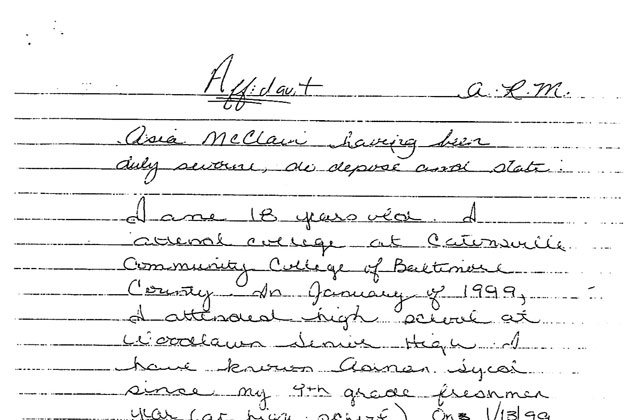 Affidavit A. R. M.
Asia McClain having been
duly sworne, do depose and state:
I am 18 years old. I
attend college at Catonsville
Community College of Baltimore
County. In January of 1999,
I attended high school at
Woodlawn Senior High. I
have known Adnan Syed
since my 9th grade freshmen
year (at high school). On 1/13/99